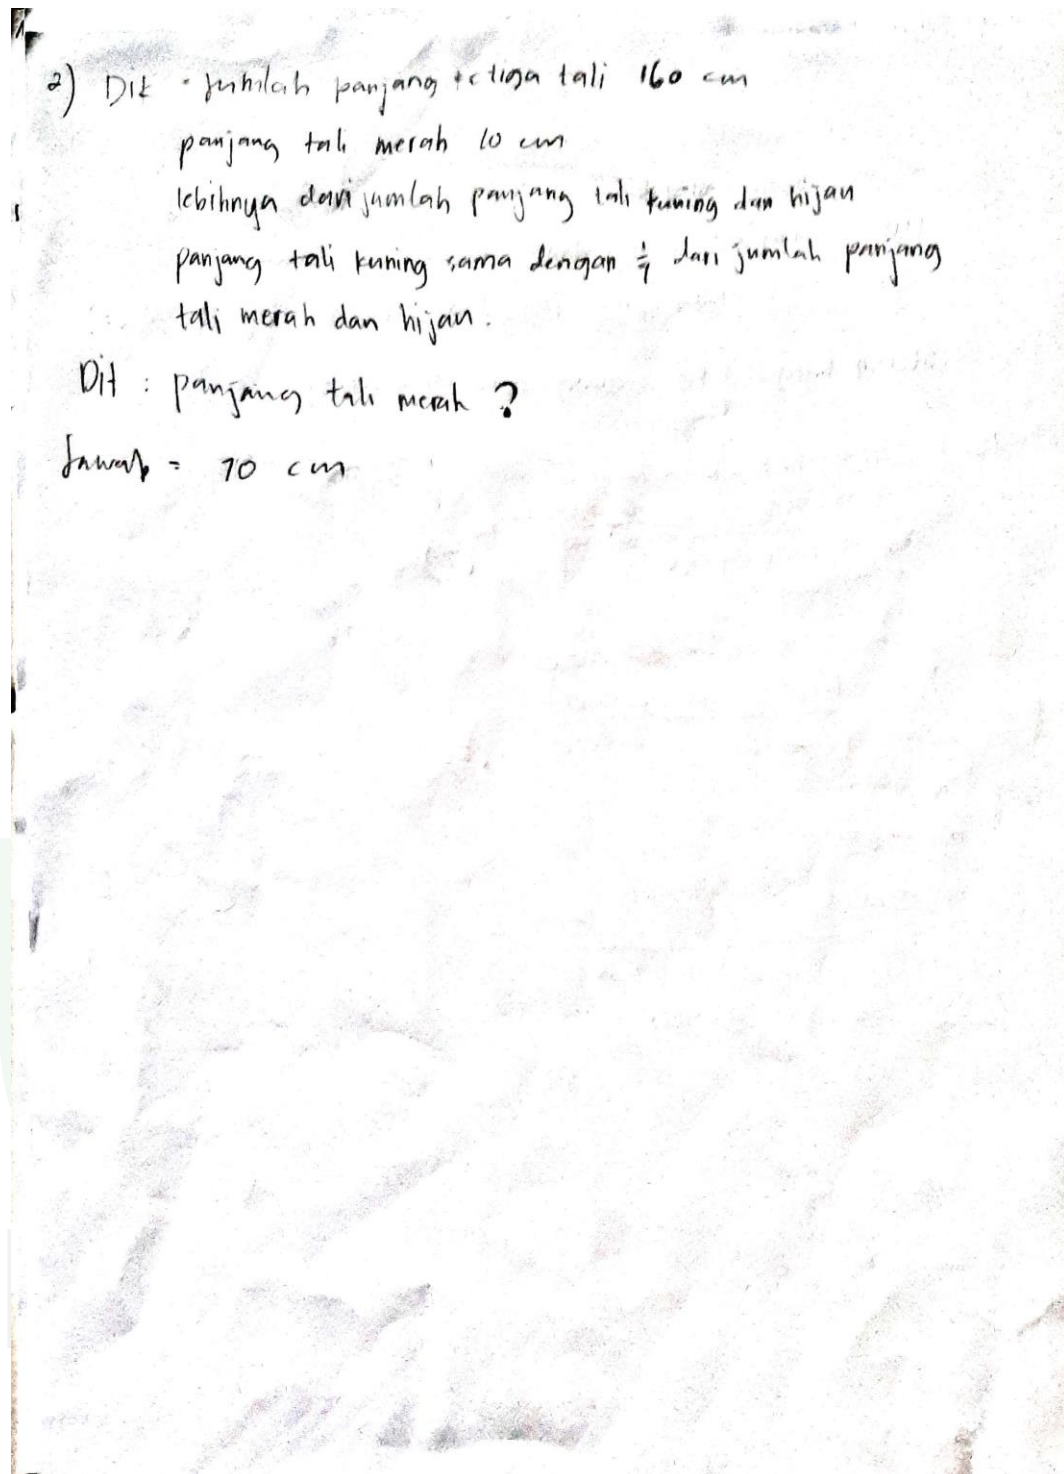 2) Dik • Jumlah panjang ketiga tali 160 cm
panjang tali merah 10 cm
lebihnya dari jumlah panjang tali kuning dan hijau
panjang tali kuning sama dengan 1/7 dari jumlah panjang
tali merah dan hijau.
Dit : panjang tali merah ?
Jawab = 70 cm